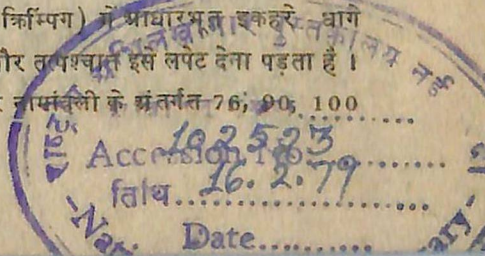 क्रिम्पिंग) में आधारभूत इकहरे धागे
और तत्पश्चात इसे लपेट देना पड़ता है ।
नामावली के अंतर्गत 76, 90, 100
पुस्तकालय नई
102523
Accession No.
तिथि 16.2.79
Date